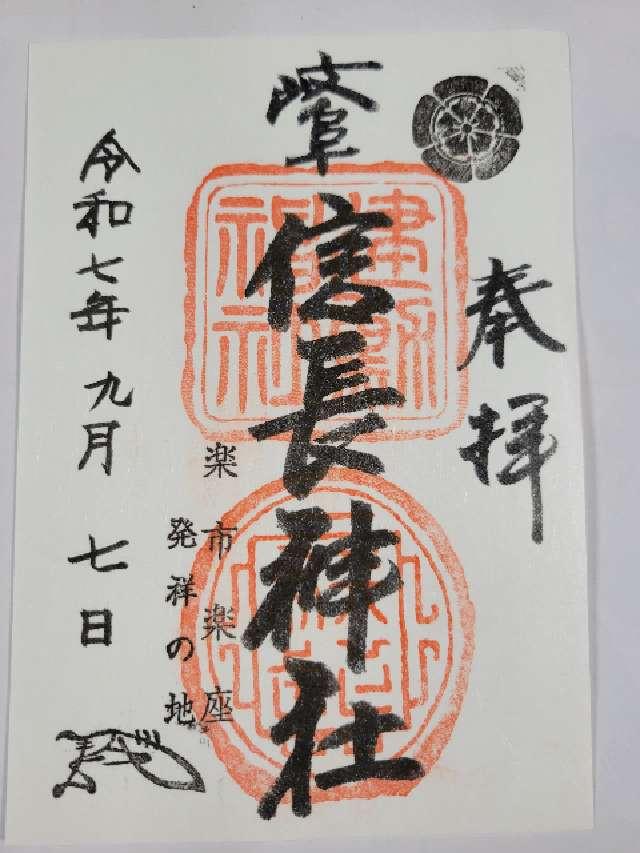 奉拝
岐阜
信長神社
建勲神社
楽市楽座
発祥の地
令和七年九月七日